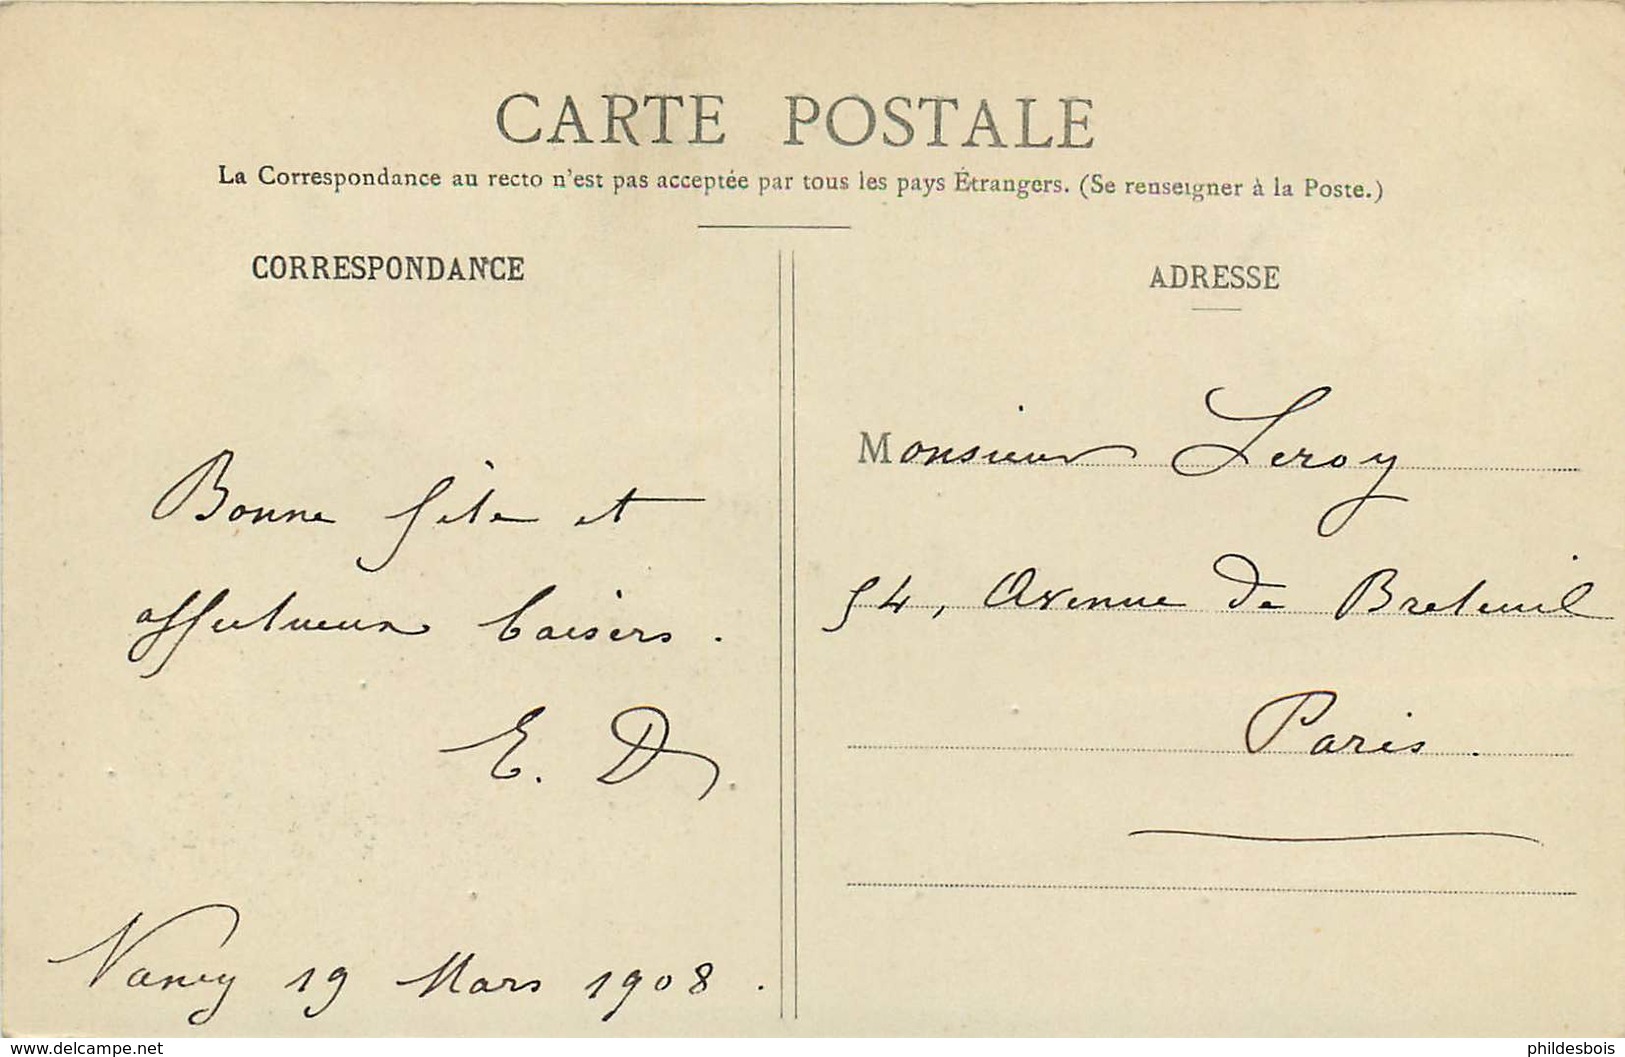 CARTE POSTALE
La Correspondance au recto n'est pas acceptée par tous les pays Étrangers. (Se renseigner à la Poste.)
CORRESPONDANCE
Bonne fête et
affectueux baisers.
E. D
Nancy 19 Mars 1908.
ADRESSE
Monsieur Leroy
54, Avenue de Breteuil
Paris.
www.delcampe.net
phildesbois